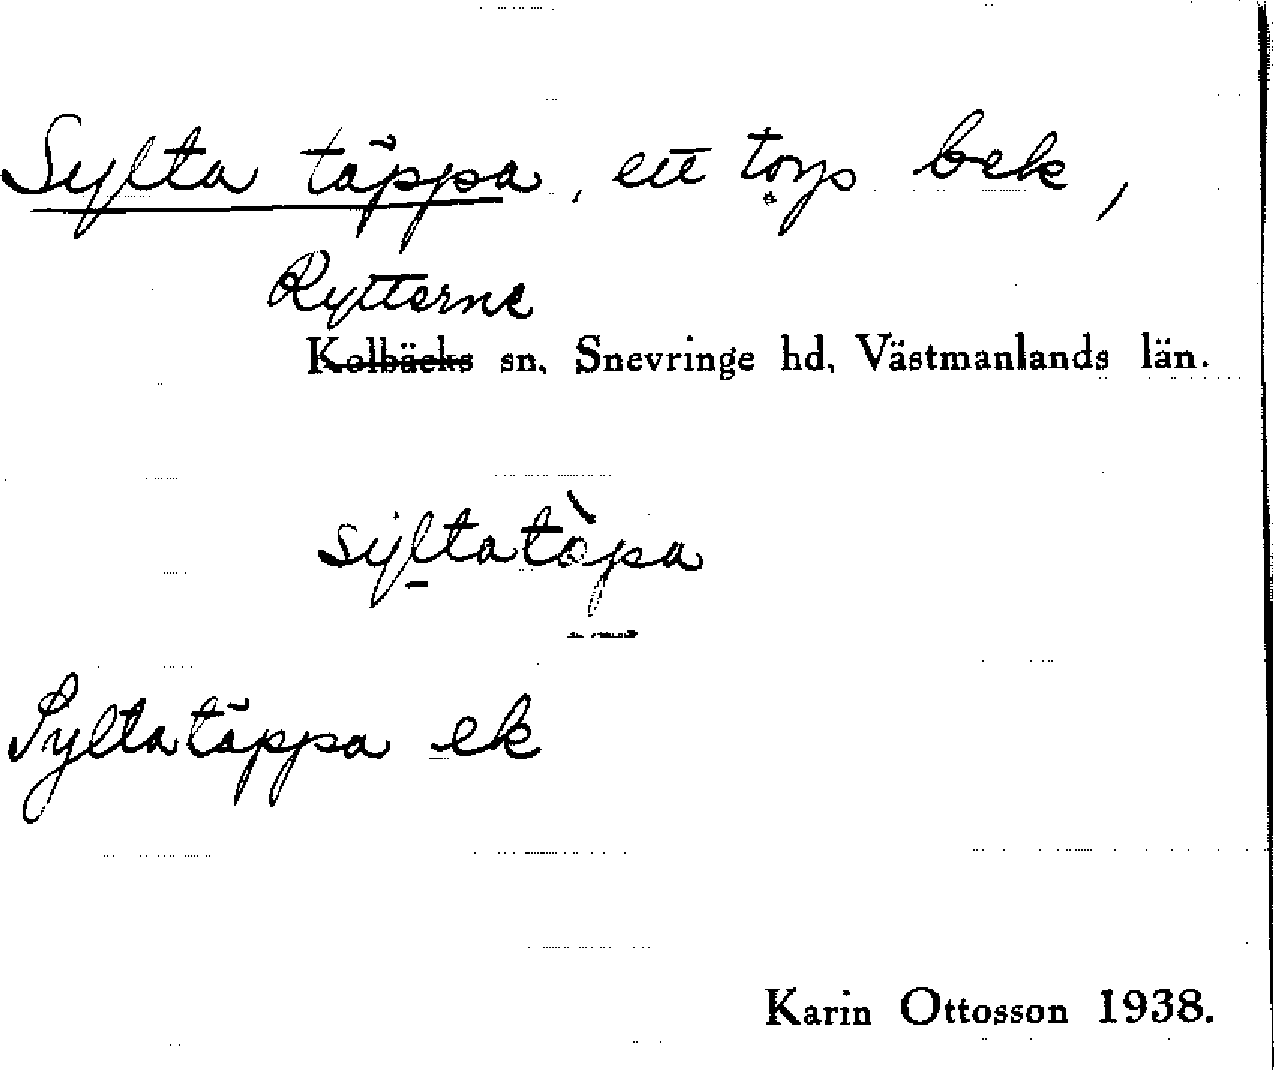 Sylta täppa, ett torp bek,
Rytterne
Kolbäcks sn, Snevringe hd, Västmanlands län.
syltatòpa
Syltatäppa ek
Karin Ottosson 1938.